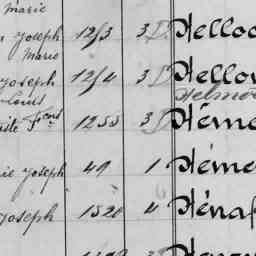 Marie
Joseph 12/3 3 D. Helloc
Marie
Joseph 12/4 3 D. Hellou
Louis Helmo
iste Fcois 1255 3 D. Héme
ie Joseph 49 1 Héme
Joseph 1520 4 Hénaf